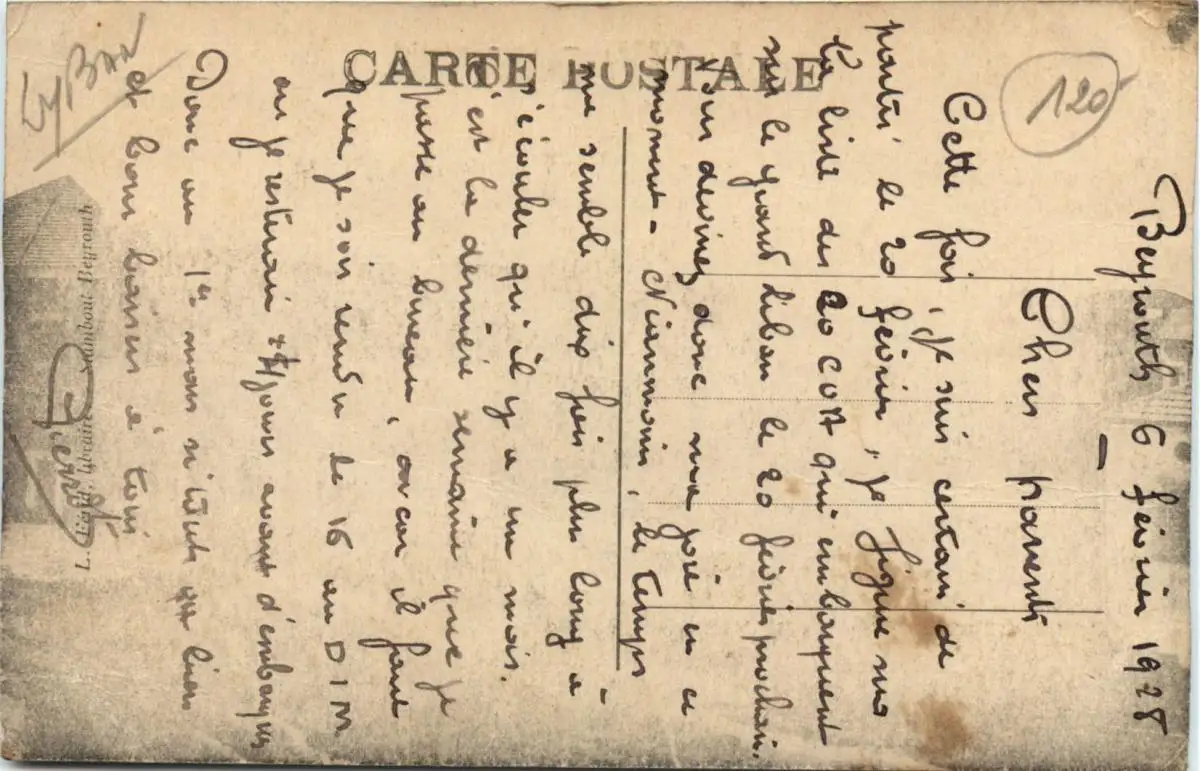 CARTE POSTALE
120
Beyrouth 6 février 1928
Chers parents
Cette fois, je suis certain de
partir le 20 février, je figure sur
la liste des COA qui embarquent
sur le grand Liban le 20 février prochain.
Vous devinez donc ma joie en ce
moment - Néanmoins, le temps
me semble dix fois plus long à
s'écouler qu'il y a un mois.
C'est la dernière semaine que je
passe au bureau, car il faut
que je sois rendu le 16 au DIM
où je resterai jours avant d'embarquer
Donc au 1er mars si tout va bien
et bons baisers à tous
Pierre
L. libraire Beyrouth